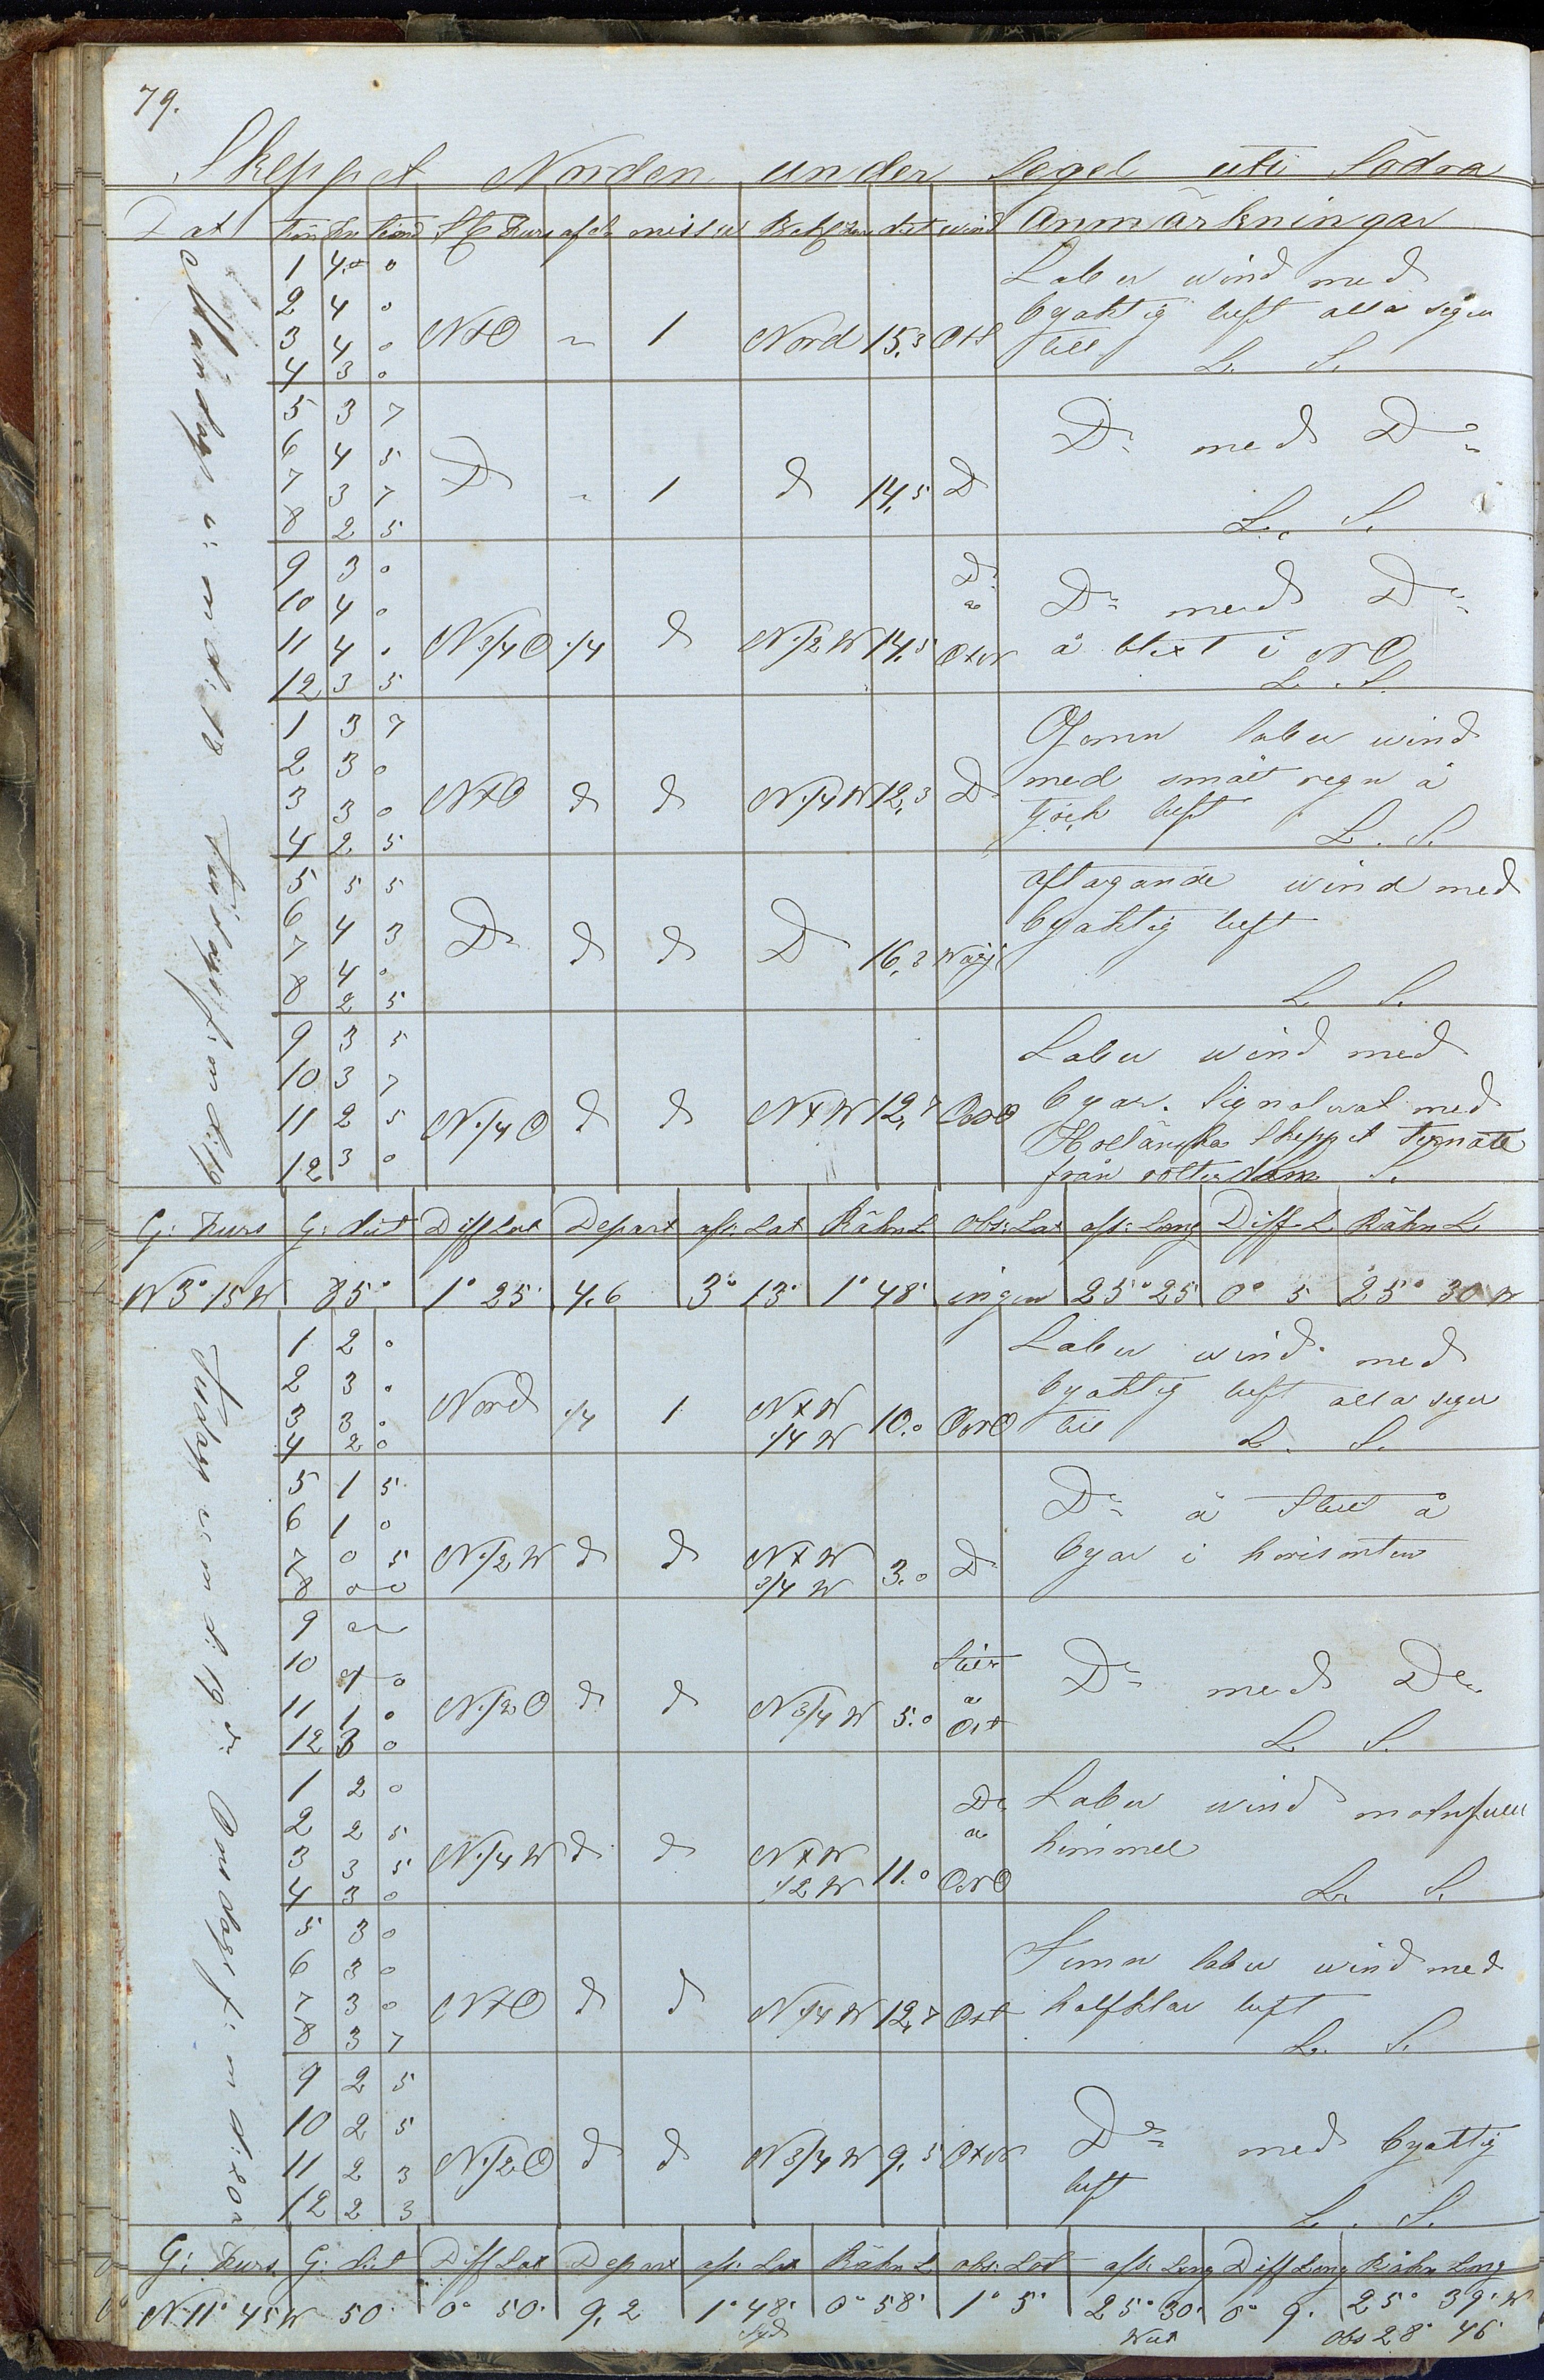 79.
Skeppet Norden under Segel uti Södra
Dat Tim Kn St Kurs afdr missw dist wind Anmärkningar
Måndag e: m d: 18 Tisdag f: m d: 19
1 4.0 0
2 4 0
3 4 0
4 3 0
NtO " 1 Nord 15,3 OtS
Laber wind med
byaktig luft alla segel
till L. S.
5 3 7
6 4 5
7 3 7
8 2 5
Do " 1 d 14,5 Do
Do med Do
L. S.
9 3 0
10 4 0
11 4 0
12 3 5
N 3/4 O 1/4 d N 1/2 W 14,5 Do a OtN
Do med Do
å blixt i NO
L. S.
1 3 7
2 3 0
3 3 0
4 2 5
NtO d d N 1/4 W 12,3 Do
Jemn laber wind
med smått regn å
tjock luft
L. S.
5 5 5
6 4 3
7 4 0
8 2 5
Do d d Do 16,3
aftagande wind med
byaktig luft
L S.
9 3 5
10 3 7
11 2 5
12 3 0
N 1/4 O d d NtW 12,7 ONO
Laber wind med
byar. Signalerat med
Holländska Skeppet Ternate
från Rotterdam S.
G: Kurs G: dist Diff Lat Depart afs: Lat Räkn L obs: Lat afs: Long Diff L Räkn L.
N 3° 15 W 85° 1° 25' 4,6 3° 13' 1° 48' ingen 25° 25 0° 5 25° 30 W
Tisdag e m d: 19 Onsdag f: m d: 20
1 2 0
2 3 0
3 3 0
4 2 0
Nord 1/4 1 NtW 1/4 W 10.0 ONO
Laber wind med
byaktig luft alla segel
till L. S.
5 1 5
6 1 0
7 0 5
8 0 0
N 1/2 W d d NtW 3/4 W 3.0 Do
Do å Stilt å
byar i horisonten
9
10 1 0
11 1 0
12 3 0
N 1/2 O d d N 3/4 W 5.0 Stilt a Ost
Do med Do
L. S.
1 2 0
2 2 5
3 3 5
4 3 0
N 1/4 W d d NtW 1/2 W 11.0 Do a ONO
Laber wind molnfull
himmel
L. S.
5 3 0
6 3 0
7 3 0
8 3 7
NtO d d N 1/4 W 12,7 Ost
Jemn laber wind med
halfklar luft
L. S.
9 2 5
10 2 5
11 2 3
12 2 3
N 1/2 O d d N 3/4 W 9,5 OtN
Do med byaktig
luft
L. S.
G: Kurs G: dist Diff Lat Depart afs: Lat Räkn L obs: Lat afs: Long Diff Long Räkn Long
N 11° 45 W 50' 0° 50' 9,2 1° 48' Syd 0° 58' 1° 5' 25° 30' West 0° 9' 25° 39' W
Obs 28° 46'